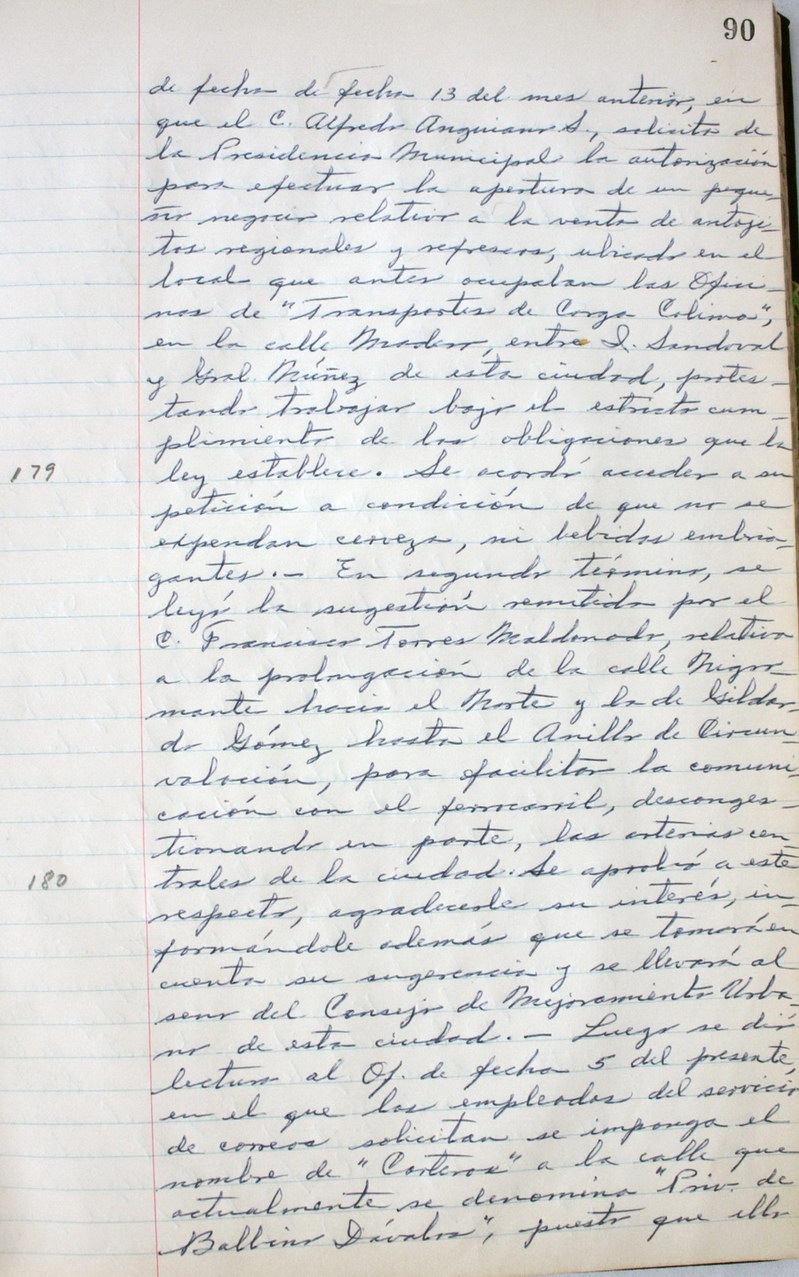 90
de fecha de fecha 13 del mes anterior, en
que el C. Alfredo Anguiano S., solicita de
la Presidencia Municipal la autorización
para efectuar la apertura de un peque-
ño negocio relativo a la venta de antoji-
tos regionales y refrescos, ubicado en el
local que antes ocupaban las Ofici-
nas de "Transportes de Carga Colima",
en la calle Madero, entre I. Sandoval
y Gral. Núñez de esta ciudad, protes-
tando trabajar bajo el estricto cum-
plimiento de las obligaciones que la
179 ley establece. Se acordó acceder a su
petición a condición de que no se
expendan cerveza, ni bebidas embria-
gantes.- En segundo término, se
leyó la sugestión remitida por el
C. Francisco Torres Maldonado, relativa
a la prolongación de la calle Nigro-
mante hacia el Norte y la de Gildar-
do Gómez hasta el Anillo de Circun-
valación, para facilitar la comuni-
cación con el ferrocarril, desconges-
tionando en parte, las arterias cen-
180 trales de la ciudad. Se aprobó a este
respecto, agradecerle su interés, in-
formándole además que se tomará en
cuenta su sugerencia y se llevará al
seno del Consejo de Mejoramiento Urba-
no de esta ciudad.- Luego se dió
lectura al Of. de fecha 5 del presente,
en el que los empleados del servicio
de correos solicitan se imponga el
nombre de "Carteros" a la calle que
actualmente se denomina "Priv. de
Balbino Dávalos", puesto que ello